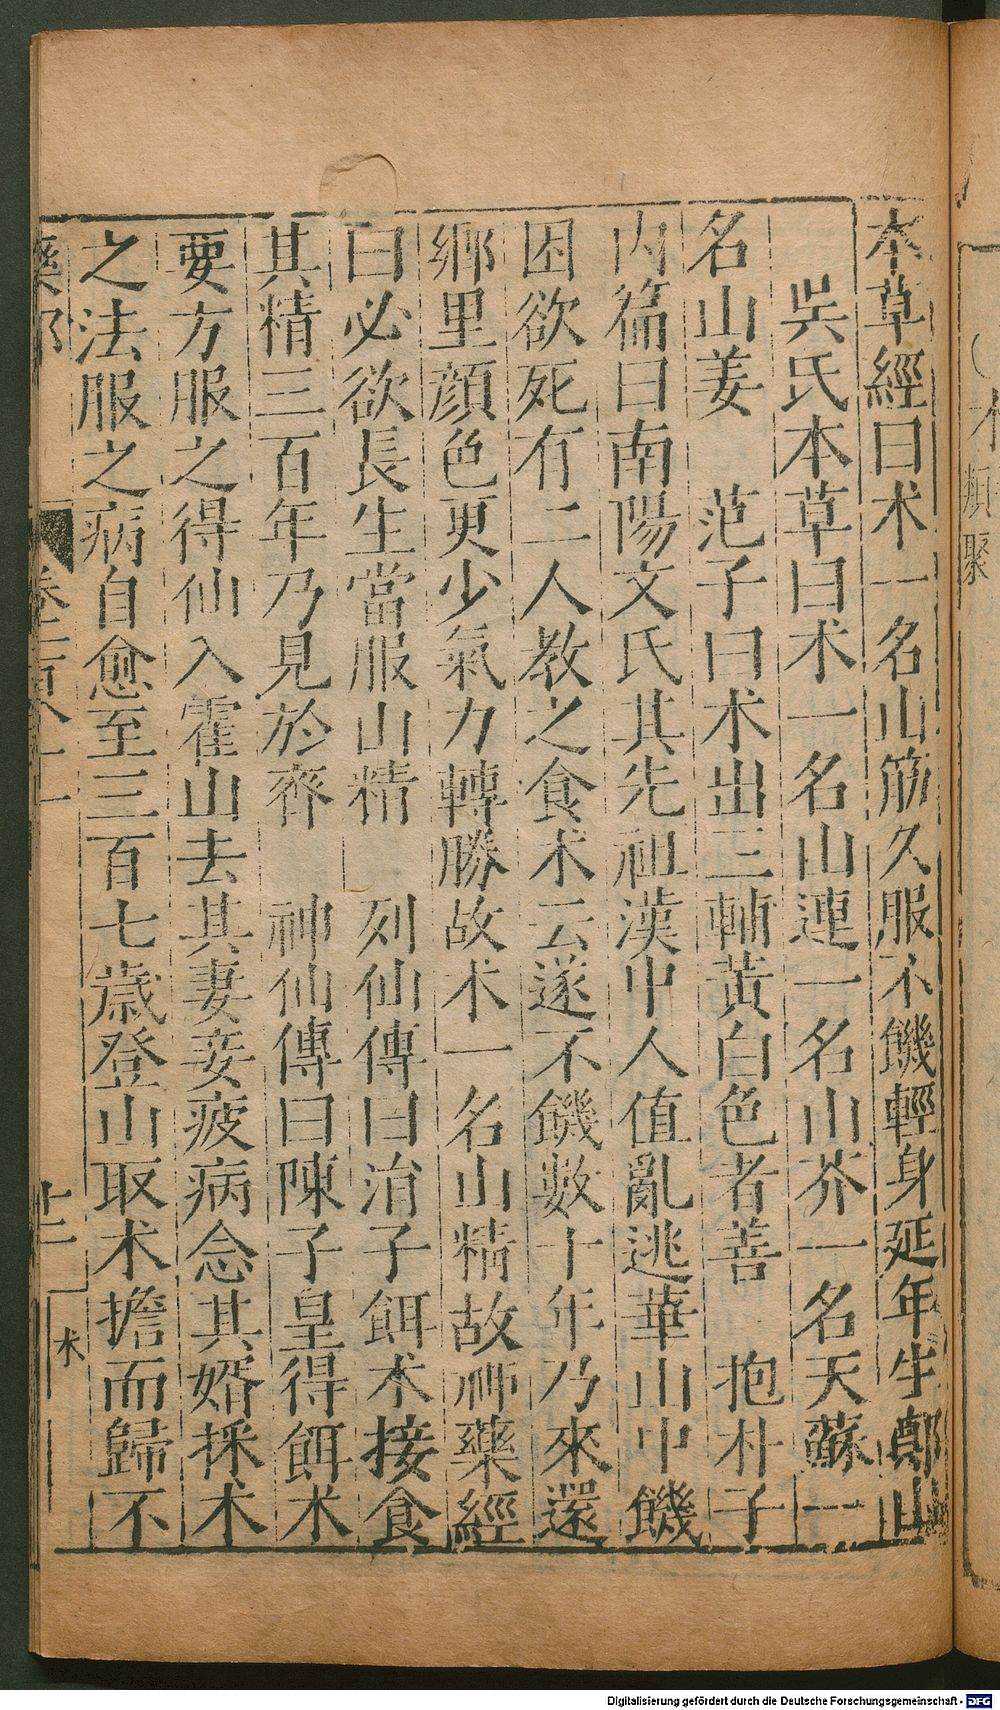 本草經曰术一名山筋久服不饑輕身延年生鄭山
吳氏本草曰术一名山連一名山芥一名天蘇一
名山姜　范子曰术出三輔黃白色者善　抱朴子
內篇曰南陽文氏其先祖漢中人值亂逃華山中饑
困欲死有二人教之食术云遂不饑數十年乃來還
鄉里顏色更少氣力轉勝故术一名山精故神藥經
曰必欲長生當服山精　列仙傳曰涓子餌术接食
其精三百年乃見於齊　神仙傳曰陳子皇得餌术
要方服之得仙入霍山去其妻姜疲病念其婿採术
之法服之病自愈至三百七歲登山取术擔而歸不
藥部
十二
木
术
類聚
Digitalisierung gefördert durch die Deutsche Forschungsgemeinschaft - DFG